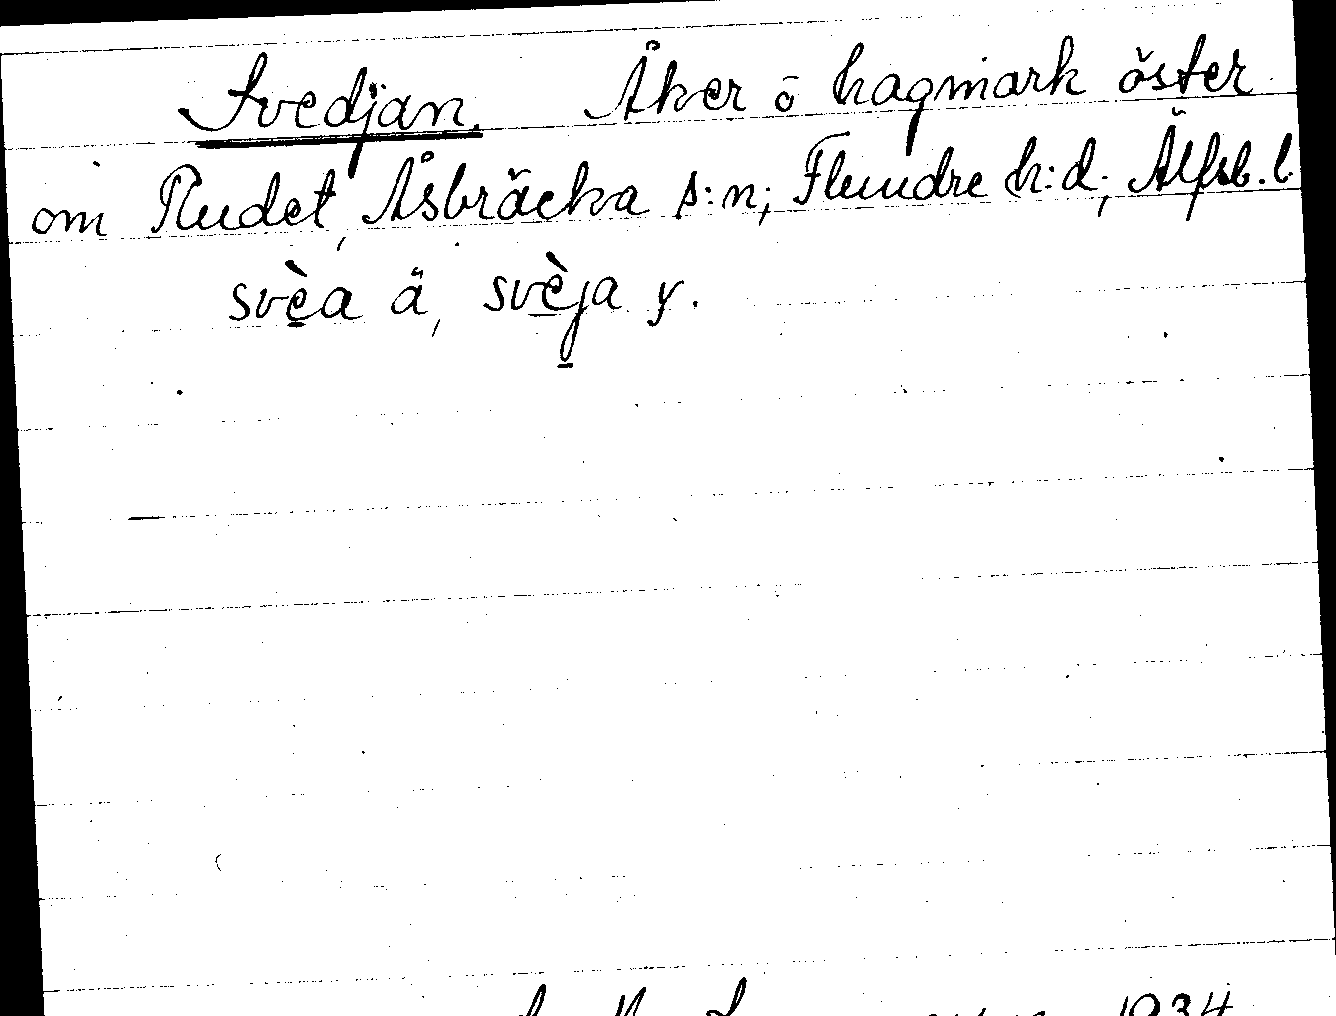 Svedjan. Åker o hagmark öster
om Rudet, Åsbräcka s:n; Flundre h:d; Älfsb. l.
svèa ä, svèja y.
1934